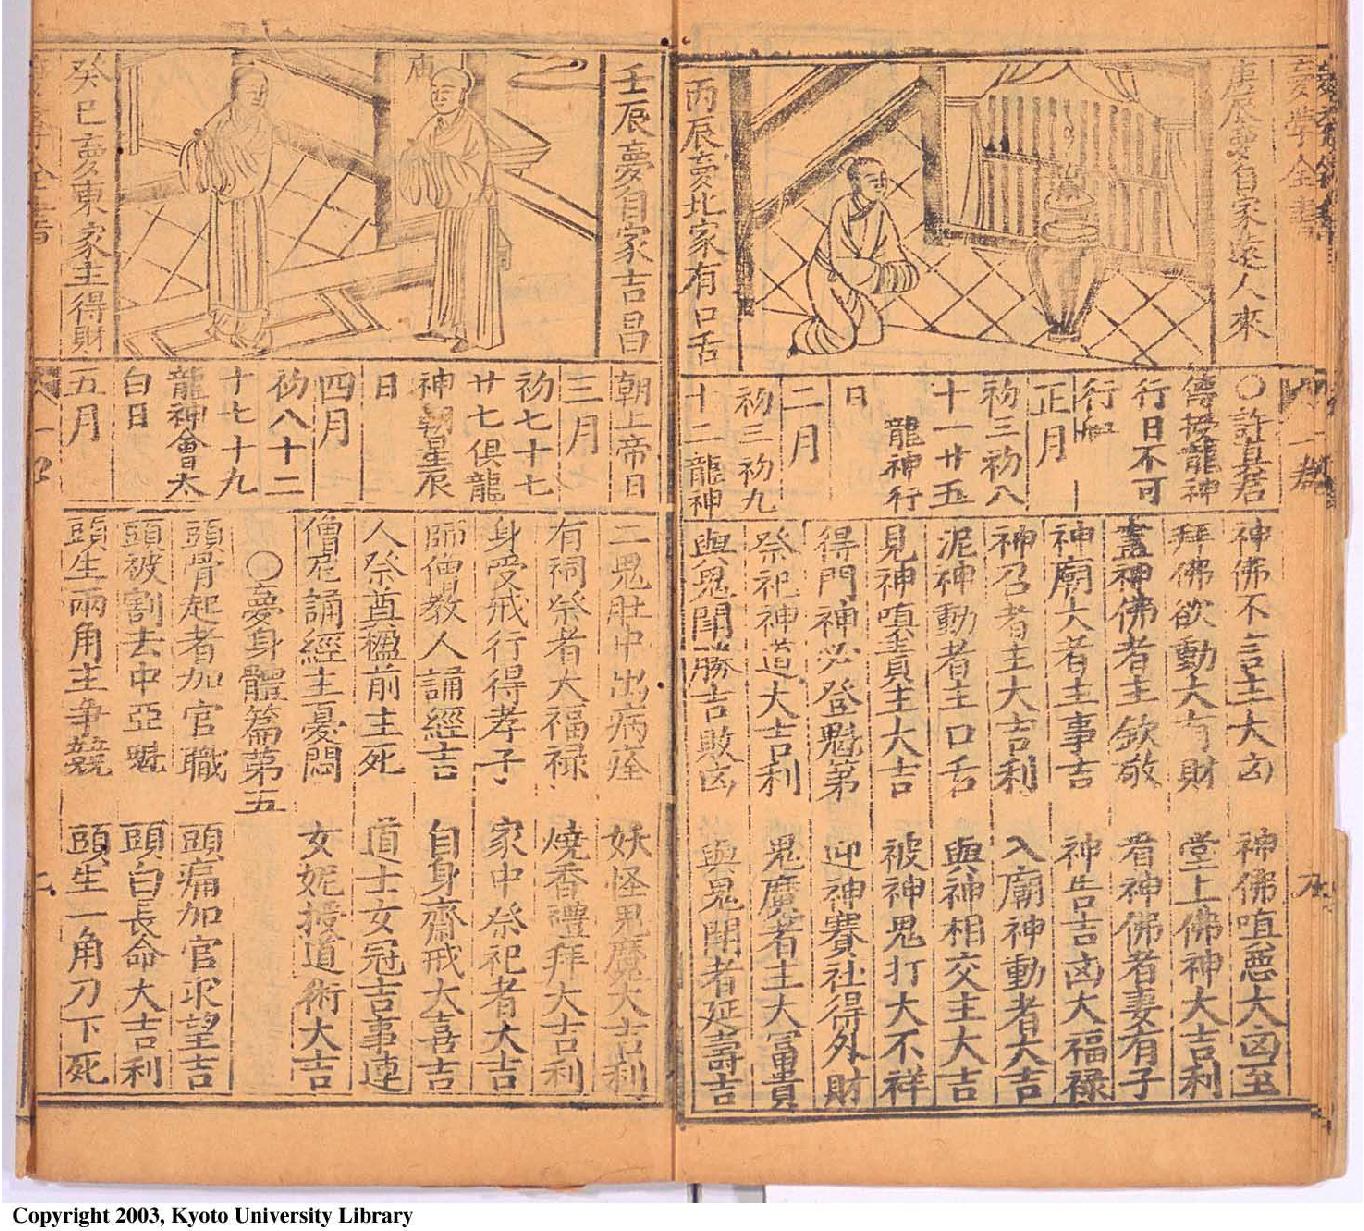 夢學全書
庚辰夢自家遠人來
丙辰夢比家有口舌
〇許真君
傳授龍神
行日不可
行船
正月
初三初八
十一廿五
龍神行
日
二月
初三初九
十二龍神
神佛不言主大凶
神佛嗔惡大凶至
拜佛欲動大有財
堂上佛神大吉利
畫神佛者主欽敬
看神佛者妻有子
神廟大者主事吉
神告吉凶大福祿
神召者主大吉利
入廟神動者大吉
泥神動者主口舌
與神相交主大吉
見神嗔責主大吉
被神鬼打大不祥
得門神必登魁第
迎神賽社得外財
祭祀神道大吉利
鬼魔者主大富貴
與鬼鬪勝吉敗凶
與鬼鬪者延壽吉
壬辰夢自家吉昌
廟
癸巳夢東家主得財
朝上帝日
三月
初七十七
廿七俱龍
神朝星辰
日
四月
初八十二
十七十九
龍神會太
白日
五月
二鬼肚中出病痊
妖怪鬼魔大吉利
有祠祭者大福祿
燒香禮拜大吉利
身受戒行得孝子
家中祭祀者大吉
師僧教人誦經吉
自身齋戒大喜吉
人祭奠楹前主死
道士女冠吉事連
僧尼誦經主憂悶
女妮授道術大吉
〇夢身體篇第五
頭骨起者加官職
頭痛加官求望吉
頭被割去中亞魁
頭白長命大吉利
頭生兩角主爭競
頭生一角刀下死
Copyright 2003, Kyoto University Library